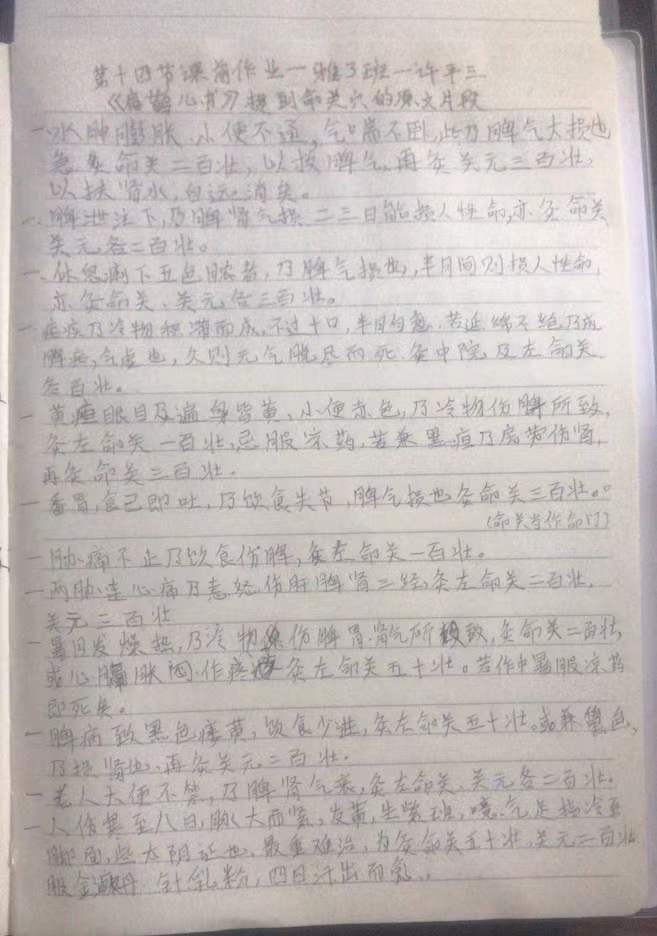 第十四节课前作业一雅3班一许平三
《扁鹊心书》提到命关穴的原文片段
一水肿膨胀、小便不通,气喘不卧,此乃脾气大损也
急灸命关二百壮,以救脾气,再灸关元三百壮,
以扶肾水,自运消矣。
一、脾泄注下,乃脾肾气损,二三日能损人性命,亦灸命关
关元各二百壮。
一、休息痢下五色脓者,乃脾气损也,半月间则损人性命,
亦灸命关、关元各三百壮。
一疟疾乃冷物积滞而成,不过十日,半月自愈,若延绵不绝乃成
脾疟,气虚也,久则元气脱尽而死,灸中院及左命关
各百壮。
一黄疸眼目及遍身皆黄,小便赤色,乃冷物伤脾所致,
灸左命关一百壮,忌服凉药,若兼黑疸乃房劳伤肾,
再灸命关三百壮.
一番胃,食已即吐,乃饮食失节,脾气损也灸命关三百壮。
(命关当作命门)
一胁痛不止乃饮食伤脾,灸左命关一百壮。
一两胁连心痛乃恚怒伤肝脾肾三经,灸左命关二百壮,
关元三百壮
一暑月发燥热,乃冷物伤脾胃肾气所致,灸命关二百壮
或心膈胀闷作疼 灸左命关五十壮。若作中暑服凉药
即死矣。
一脾病致黑色痿黄,饮食少进,灸左命关五十壮。或兼黧色,
乃损肾也,再灸关元二百壮.
一老人大便不禁,乃脾肾气衰,灸左命关、关元各二百壮.
一人伤寒至八日,脉大而紧,发黄,生紫斑,噫气,足指冷至
脚面,此太阴证也,最重难治,为灸命关五十壮,关元二百壮
服金液丹 钟乳粉,四日汗出而愈.